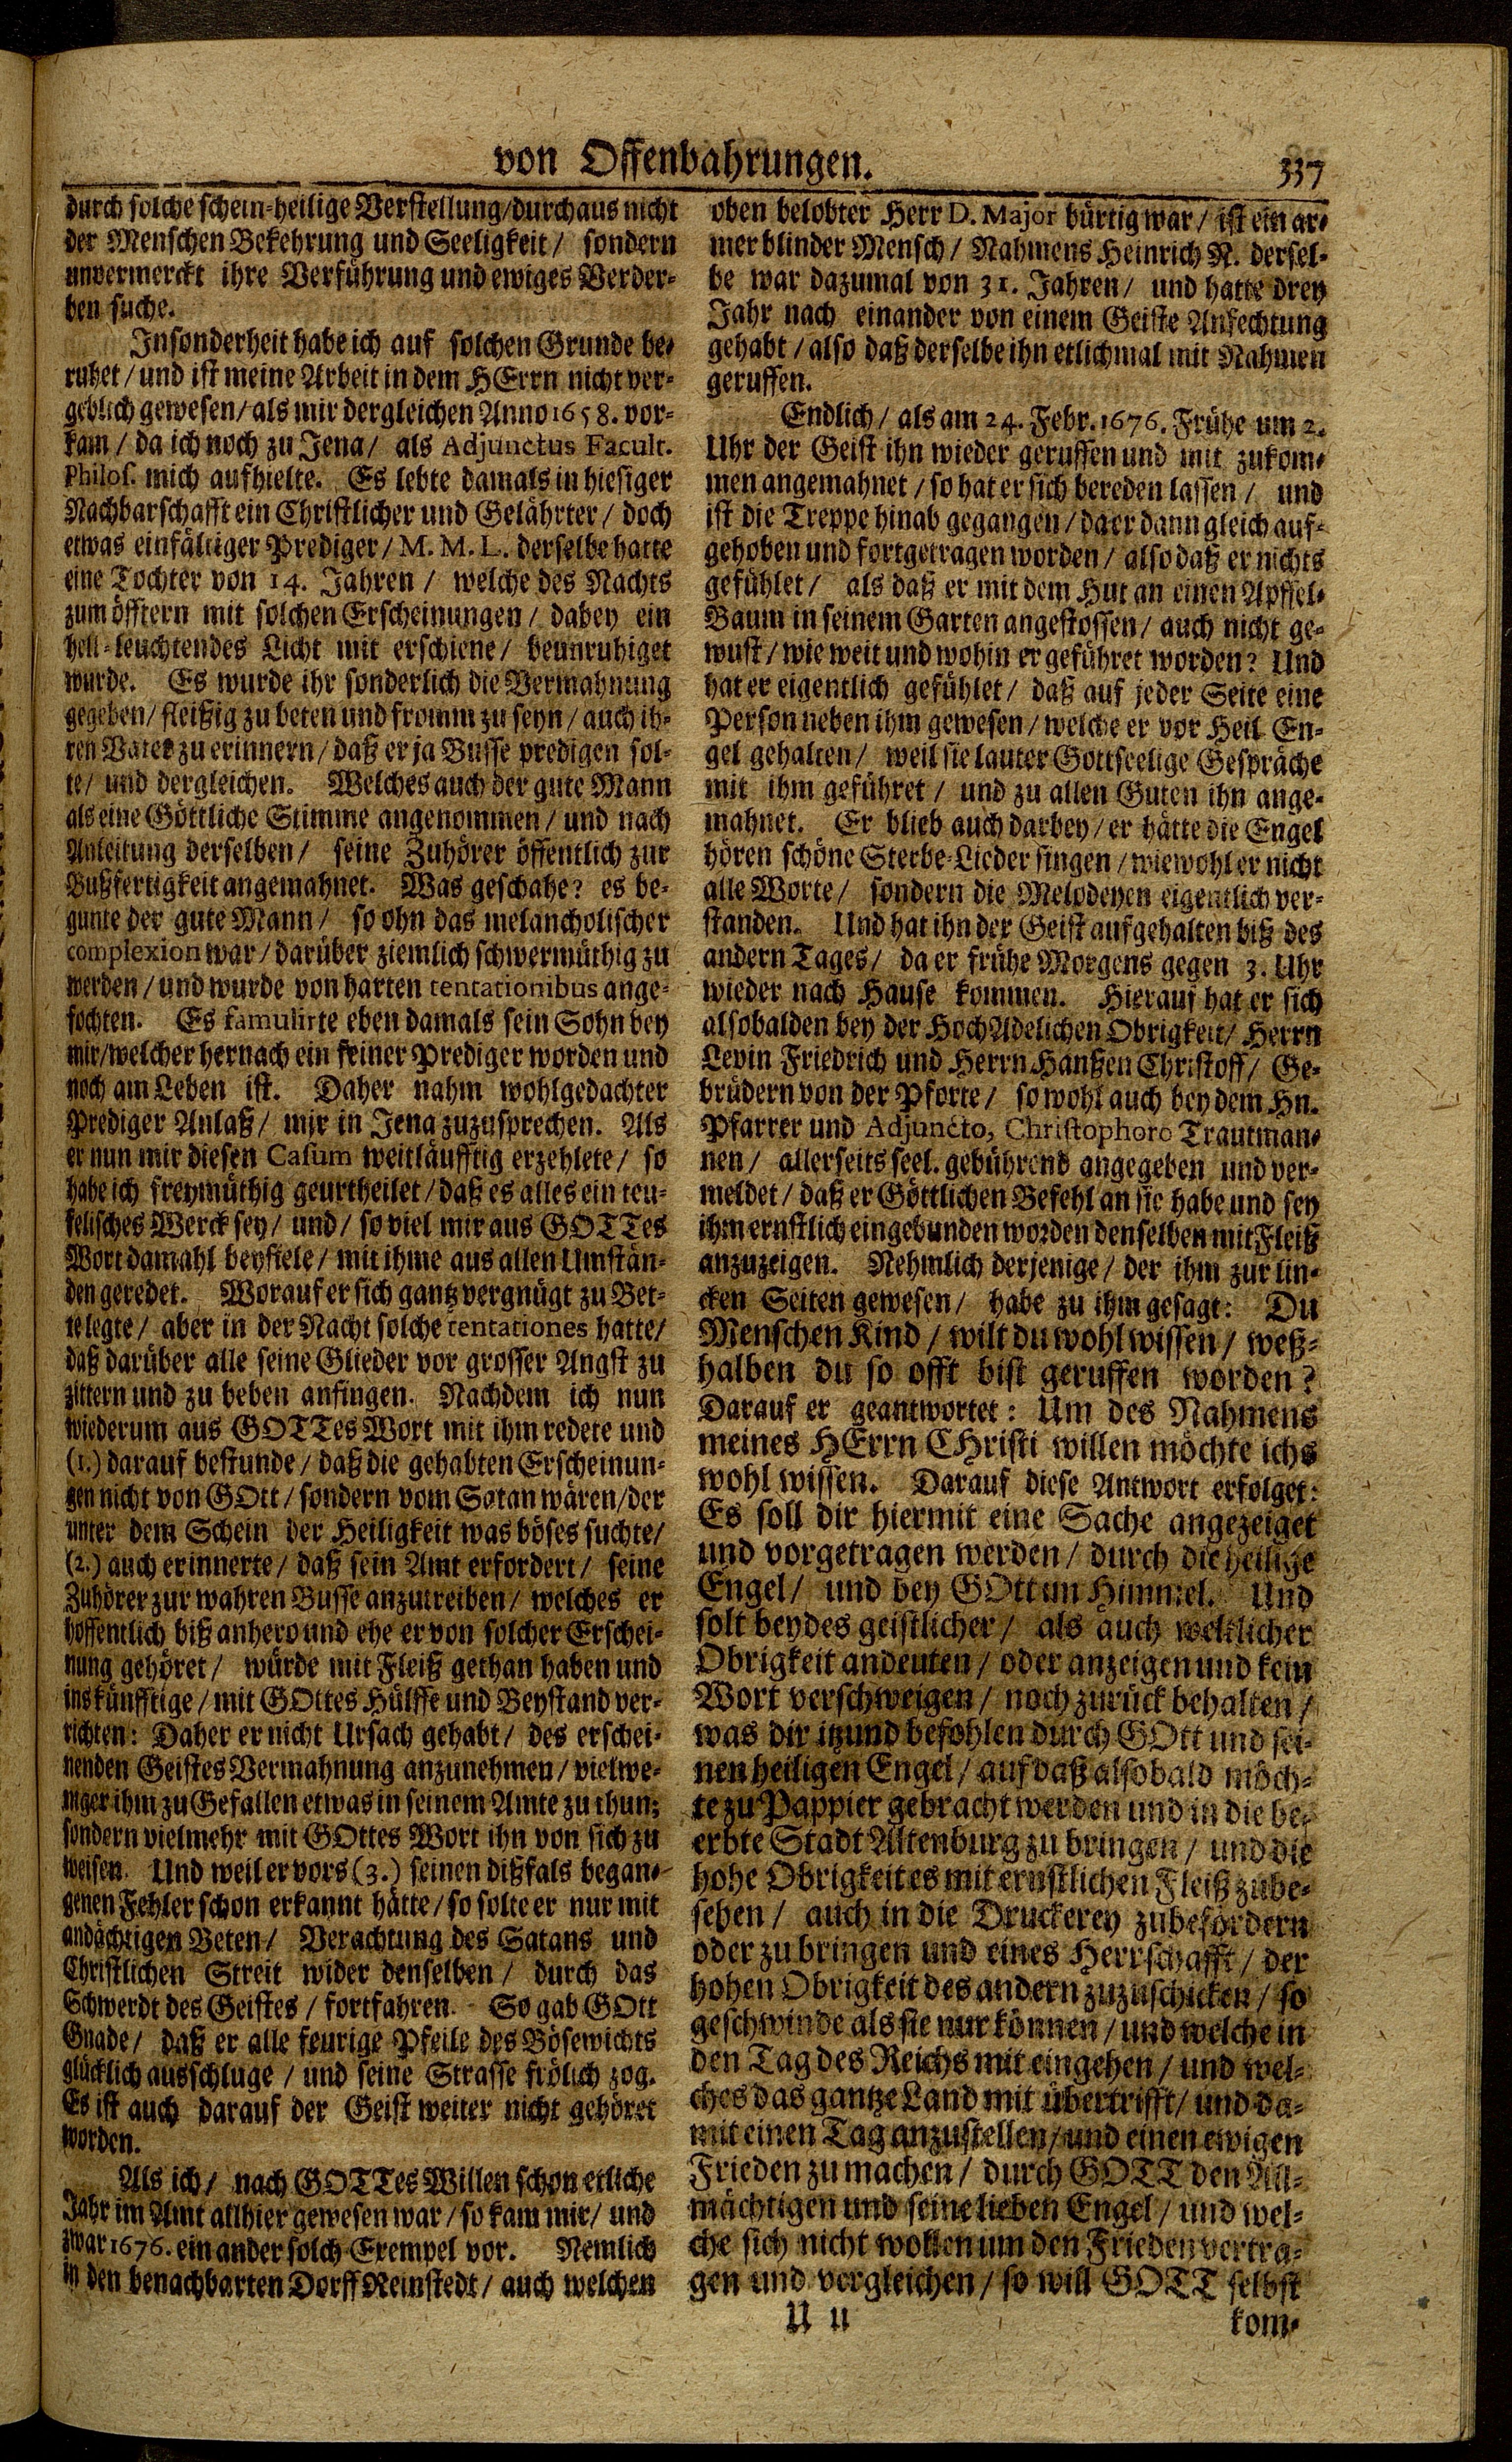 von Offenbahrungen. 337
durch solche schein-heilige Verstellung/durchaus nicht
der Menschen Bekehrung und Seeligkeit/ sondern
unvermerckt ihre Verführung und ewiges Verder-
ben suche.
Insonderheit habe ich auf solchen Grunde be-
ruhet/und ist meine Arbeit in dem HErrn nicht ver-
geblich gewesen/als mir dergleichen Anno 1658. vor-
kam/da ich noch zu Jena/ als Adjunctus Facult.
Philos. mich aufhielte. Es lebte damals in hiesiger
Nachbarschafft ein Christlicher und Gelährter/ doch
etwas einfältiger Prediger/M. M. L. derselbe hatte
eine Tochter von 14. Jahren/ welche des Nachts
zum öfftern mit solchen Erscheinungen/ dabey ein
hell-leuchtendes Licht mit erschiene/ beunruhiget
wurde. Es wurde ihr sonderlich die Vermahnung
gegeben/fleißig zu beten und fromm zu seyn/auch ih-
ren Vater zu erinnern/daß er ja Busse predigen sol-
te/ und dergleichen. Welches auch der gute Mann
als eine Göttliche Stimme angenommen/ und nach
Anleitung derselben/ seine Zuhörer öffentlich zur
Bußfertigkeit angemahnet. Was geschahe? es be-
gunte der gute Mann/ so ohn das melancholischer
complexion war/darüber ziemlich schwermüthig zu
werden/und wurde von harten tentationibus ange-
fochten. Es famulirte eben damals sein Sohn bey
mir/welcher hernach ein feiner Prediger worden und
noch am Leben ist. Daher nahm wohlgedachter
Prediger Anlaß/ mir in Jena zuzusprechen. Als
er nun mir diesen Casum weitläufftig erzehlete/ so
habe ich freymüthig geurtheilet/daß es alles ein teu-
felisches Werck sey/ und/ so viel mir aus GOTTes
Wort damahl beyfiele/mit ihme aus allen Umstän-
den geredet. Worauf er sich gantz vergnügt zu Bet-
te legte/ aber in der Nacht solche tentationes hatte/
daß darüber alle seine Glieder vor grosser Angst zu
zittern und zu beben anfingen. Nachdem ich nun
wiederum aus GOTTes Wort mit ihm redete und
(1.) darauf bestunde/daß die gehabten Erscheinun-
gen nicht von GOtt/ sondern vom Satan wären/der
unter dem Schein der Heiligkeit was böses suchte/
(2.) auch erinnerte/ daß sein Amt erfordert/ seine
Zuhörer zur wahren Busse anzutreiben/ welches er
hoffentlich biß anhero und ehe er von solcher Erschei-
nung gehöret/ würde mit Fleiß gethan haben und
ins künfftige/mit GOttes Hülffe und Beystand ver-
richten: Daher er nicht Ursach gehabt/ des erschei-
nenden Geistes Vermahnung anzunehmen/ vielwe-
niger ihm zu Gefallen etwas in seinem Amte zu thun;
sondern vielmehr mit GOttes Wort ihn von sich zu
weisen. Und weil er vors (3.) seinen dißfals began-
genen Fehler schon erkannt hätte/so solte er nur mit
andächtigen Beten/ Verachtung des Satans und
Christlichen Streit wider denselben/ durch das
Schwerdt des Geistes/ fortfahren. So gab GOtt
Gnade/ daß er alle feurige Pfeile des Bösewichts
glücklich ausschluge/ und seine Strasse frölich zog.
Es ist auch darauf der Geist weiter nicht gehöret
worden.
Als ich/ nach GOTTes Willen schon etliche
Jahr im Amt allhier gewesen war/so kam mir/ und
zwar 1676. ein ander solch Exempel vor. Nemlich
in den benachbarten Dorff Reinstedt/ auch welchen
oben belobter Herr D. Major bürtig war/ ist ein ar-
mer blinder Mensch/ Nahmens Heinrich N. dersel-
be war dazumal von 31. Jahren/ und hatte drey
Jahr nach einander von einem Geiste Anfechtung
gehabt/also daß derselbe ihn etlichmal mit Nahmen
geruffen.
Endlich/ als am 24. Febr. 1676. Frühe um 2.
Uhr der Geist ihn wieder geruffen und mit zukom-
men angemahnet/so hat er sich bereden lassen/ und
ist die Treppe hinab gegangen/da er dann gleich auf-
gehoben und fortgetragen worden/also daß er nichts
gefühlet/ als daß er mit dem Hut an einen Apffel-
Baum in seinem Garten angestossen/ auch nicht ge-
wust/wie weit und wohin er geführet worden? Und
hat er eigentlich gefühlet/ daß auf jeder Seite eine
Person neben ihm gewesen/welche er vor Heil. En-
gel gehalten/ weil sie lauter Gottseelige Gespräche
mit ihm geführet/ und zu allen Guten ihn ange-
mahnet. Er blieb auch darbey/er hätte die Engel
hören schöne Sterbe-Lieder singen/wiewohl er nicht
alle Worte/ sondern die Melodeyen eigentlich ver-
standen. Und hat ihn der Geist aufgehalten biß des
andern Tages/ da er frühe Morgens gegen 3. Uhr
wieder nach Hause kommen. Hierauf hat er sich
alsobalden bey der HochAdelichen Obrigkeit/ Herrn
Levin Friedrich und Herrn Hanßen Christoff/ Ge-
brüdern von der Pforte/ so wohl auch bey dem Hn.
Pfarrer und Adjuncto, Christophoro Trautman-
nen/ allerseits seel. gebührend angegeben und ver-
meldet/daß er Göttlichen Befehl an sie habe und sey
ihm ernstlich eingebunden worden denselben mit Fleiß
anzuzeigen. Nehmlich derjenige/der ihm zur lin-
cken Seiten gewesen/ habe zu ihm gesagt: Du
Menschen Kind/wilt du wohl wissen/ weß-
halben du so offt bist geruffen worden?
Darauf er geantwortet: Um des Nahmens
meines HErrn CHristi willen möchte ichs
wohl wissen. Darauf diese Antwort erfolget:
Es soll dir hiermit eine Sache angezeiget
und vorgetragen werden/ durch die heilige
Engel/ und bey GOtt im Himmel. Und
solt beydes geistlicher/ als auch weltlicher
Obrigkeit andeuten/oder anzeigen und kein
Wort verschweigen/ noch zurück behalten/
was dir itzund befohlen durch GOtt und sei-
nen heiligen Engel/ auf daß alsobald möch-
te zu Pappier gebracht werden und in die be-
erbte Stadt Altenburg zu bringen/ und die
hohe Obrigkeit es mit ernstlichen Fleiß zube-
sehen/ auch in die Druckerey zubefördern
oder zu bringen und eines Herrschafft/ der
hohen Obrigkeit des andern zuzuschicken/ so
geschwinde als sie nur können/und welche in
den Tag des Reichs mit eingehen/ und wel-
ches das gantze Land mit übertrifft/ und da-
mit einen Tag anzustellen/und einen ewigen
Frieden zu machen/ durch GOTT den All-
mächtigen und seine lieben Engel/ und wel-
che sich nicht wollen um den Frieden vertra-
gen und vergleichen/ so will GOTT selbst
U u kom-